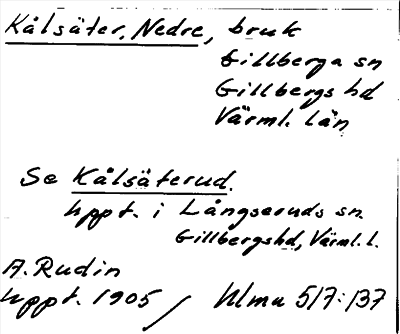 Kålsäter, Nedre, bruk
Gillberga sn
Gillbergs hd
Värml. län
Se Kålsäterud.
Uppt. i Långseruds sn.
Gillbergshd, Värml. l.
A. Rudin
Uppt. 1905 / Ulma 517:137